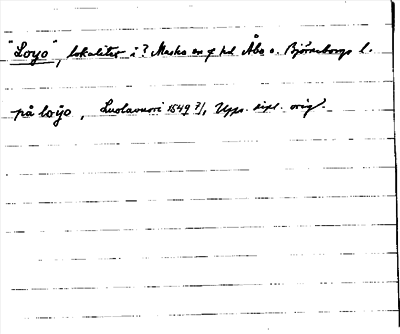 "Loyo", lokalitet i? Masko en f hd Åbo o. Björneborgs l.
på loÿo, Luolavuori 1549 7/1 Upps. dipl. orig.